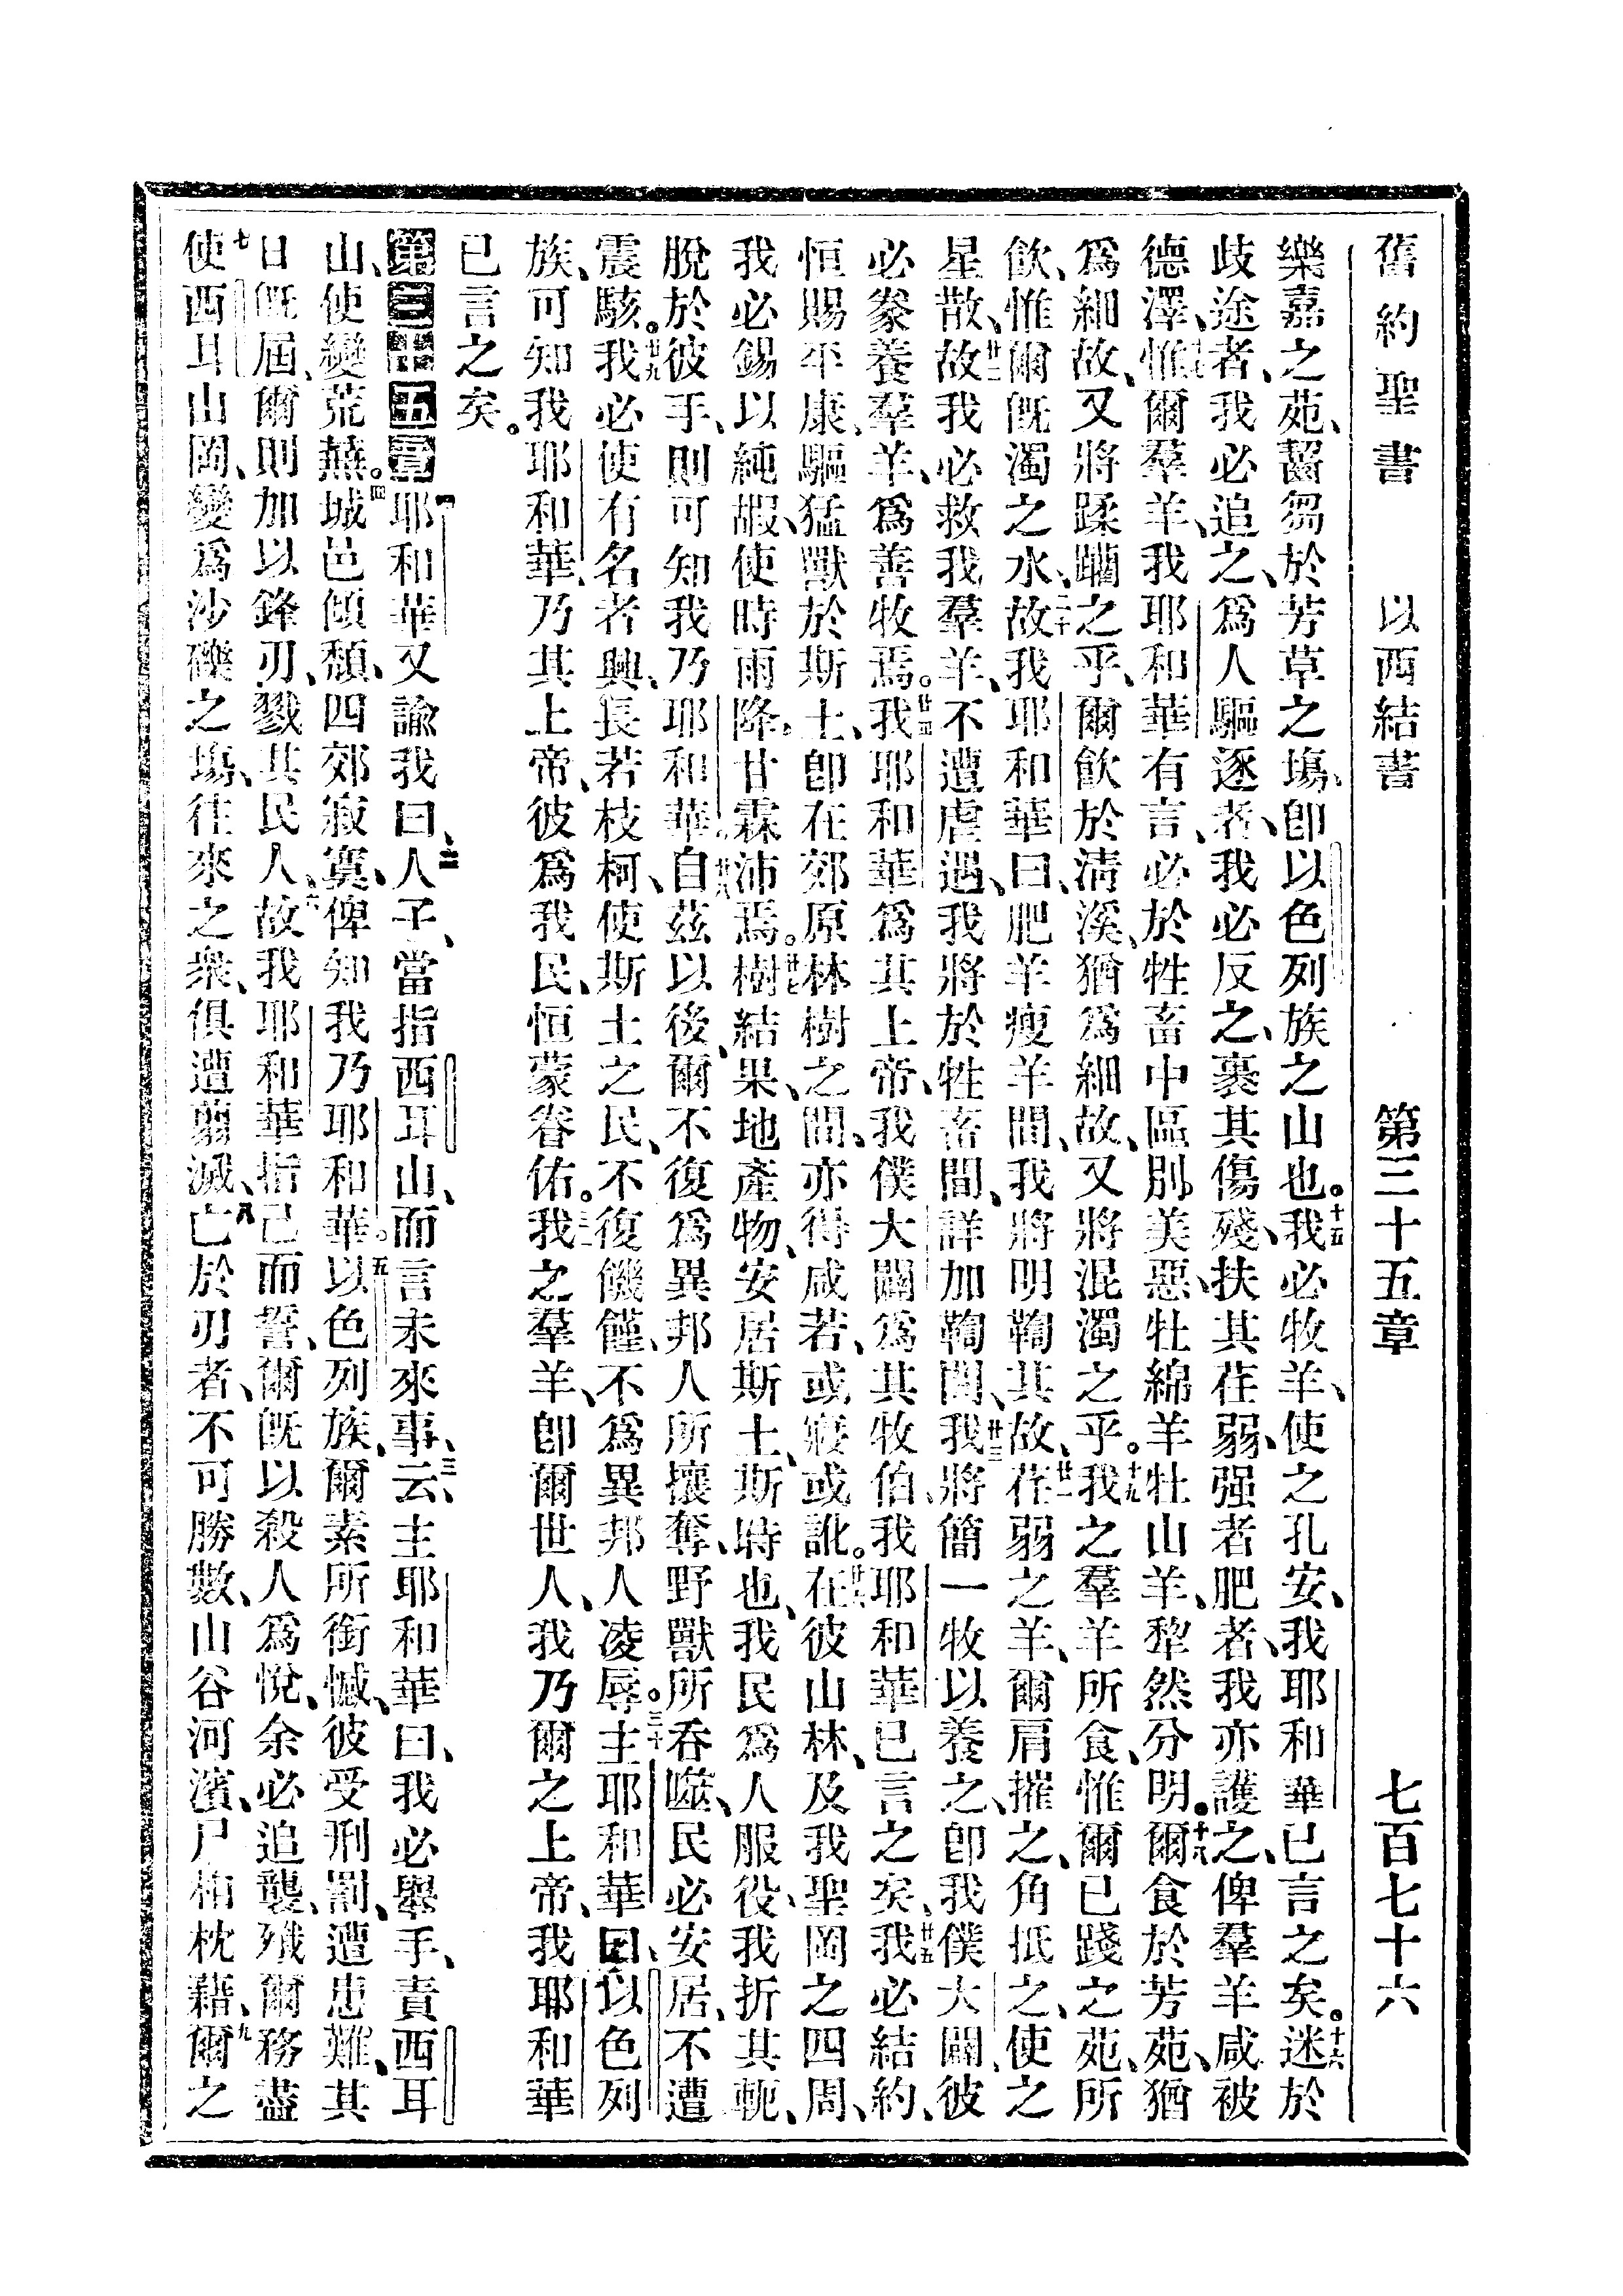 舊約聖書　以西結書　第三十五章　七百七十六
樂嘉之苑、齧芻於芳草之塲、卽以色列族之山也。十五我必牧羊、使之孔安、我耶和華已言之矣。十六迷於
歧途者、我必追之、爲人驅逐者、我必反之、裹其傷殘、扶其荏弱、强者肥者、我亦護之、俾羣羊咸被
德澤、十七惟爾羣羊、我耶和華有言、必於牲畜中區別美惡、牡綿羊牡山羊、犂然分明。十八爾食於芳苑、猶
爲細故、又將蹂躪之乎、爾飮於淸溪、猶爲細故、又將混濁之乎。十九我之羣羊所食、惟爾已踐之苑、所
飮、惟爾旣濁之水、二十故我耶和華曰、肥羊瘦羊間、我將明鞫其故、廿一荏弱之羊、爾肩摧之、角抵之、使之
星散、廿二故我必救我羣羊、不遭虐遇、我將於牲畜間、詳加鞫問、廿三我將簡一牧以養之、卽我僕大闢、彼
必豢養羣羊、爲善牧焉。廿四我耶和華爲其上帝、我僕大闢爲其牧伯、我耶和華已言之矣、廿五我必結約、
恒賜平康、驅猛獸於斯土、卽在郊原林樹之間、亦得咸若、或寢或訛。廿六在彼山林、及我聖岡之四周、
我必錫以純嘏、使時雨降。甘霖沛焉。廿七樹結果、地產物、安居斯土、斯時也、我民爲人服役、我折其軛、
脫於彼手、則可知我乃耶和華、廿八自茲以後、爾不復爲異邦人所攘奪、野獸所呑噬、民必安居、不遭
震駭。廿九我必使有名者興、長若枝柯、使斯土之民、不復饑饉、不爲異邦人凌辱。三十主耶和華曰、以色列
族、可知我耶和華、乃其上帝、彼爲我民、恒蒙眷佑。三一我之羣羊、卽爾世人、我乃爾之上帝、我耶和華
已言之矣。
第三十五章　一耶和華又諭我曰、二人子、當指西耳山、而言未來事、三云、主耶和華曰、我必舉手、責西耳
山、使變荒蕪。四城邑傾頽、四郊寂寞、俾知我乃耶和華。五以色列族、爾素所銜憾、彼受刑罰、遭患難、其
日旣屆、爾則加以鋒刃、戮其民人、六故我耶和華指己而誓、爾旣以殺人爲悅、余必追襲、殱爾務盡
七使西耳山岡、變爲沙礫之塲、往來之衆、俱遭翦滅、八亡於刃者、不可勝數、山谷河濱、尸相枕藉、九爾之